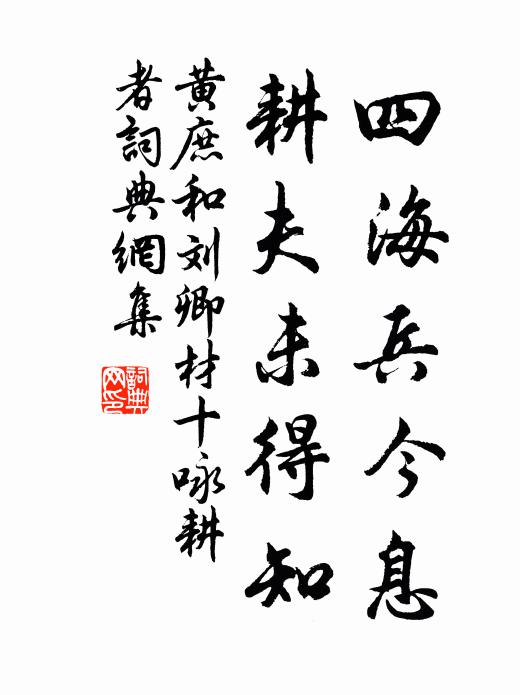 四海兵今息
耕夫未得知
黄庶和刘卿材十咏耕
者詞典網集
詞典
网印